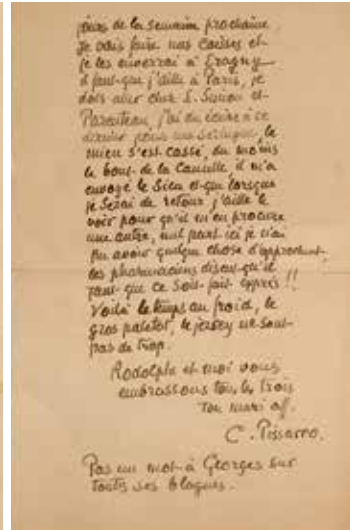 jours de la semaine prochaine.
Je vais faire nos caisses et
je les enverrai à Eragny
il faut que j'aille à Paris, je
dois aller chez S. Simon et
Parenteau, j'ai dû écrire à ce
dernier pour une seringue, le
mien s'est cassé, du moins
le bout de la canulle, il m'a
envoyé le sien et que lorsque
je serai de retour j'aille le
voir pour qu'il m'en procure
une autre, nul part ici je n'ai
pu avoir quelque chose d'approchant,
les pharmaciens disent qu'il
faut que ce soit fait exprès !!
Voilà le temps au froid, le
gros paletot, le jersey ne sont
pas de trop.
Rodolphe et moi vous
embrassons tous les trois
Ton mari aff.
C. Pissarro.
Pas un mot à Georges sur
toutes ses blagues.